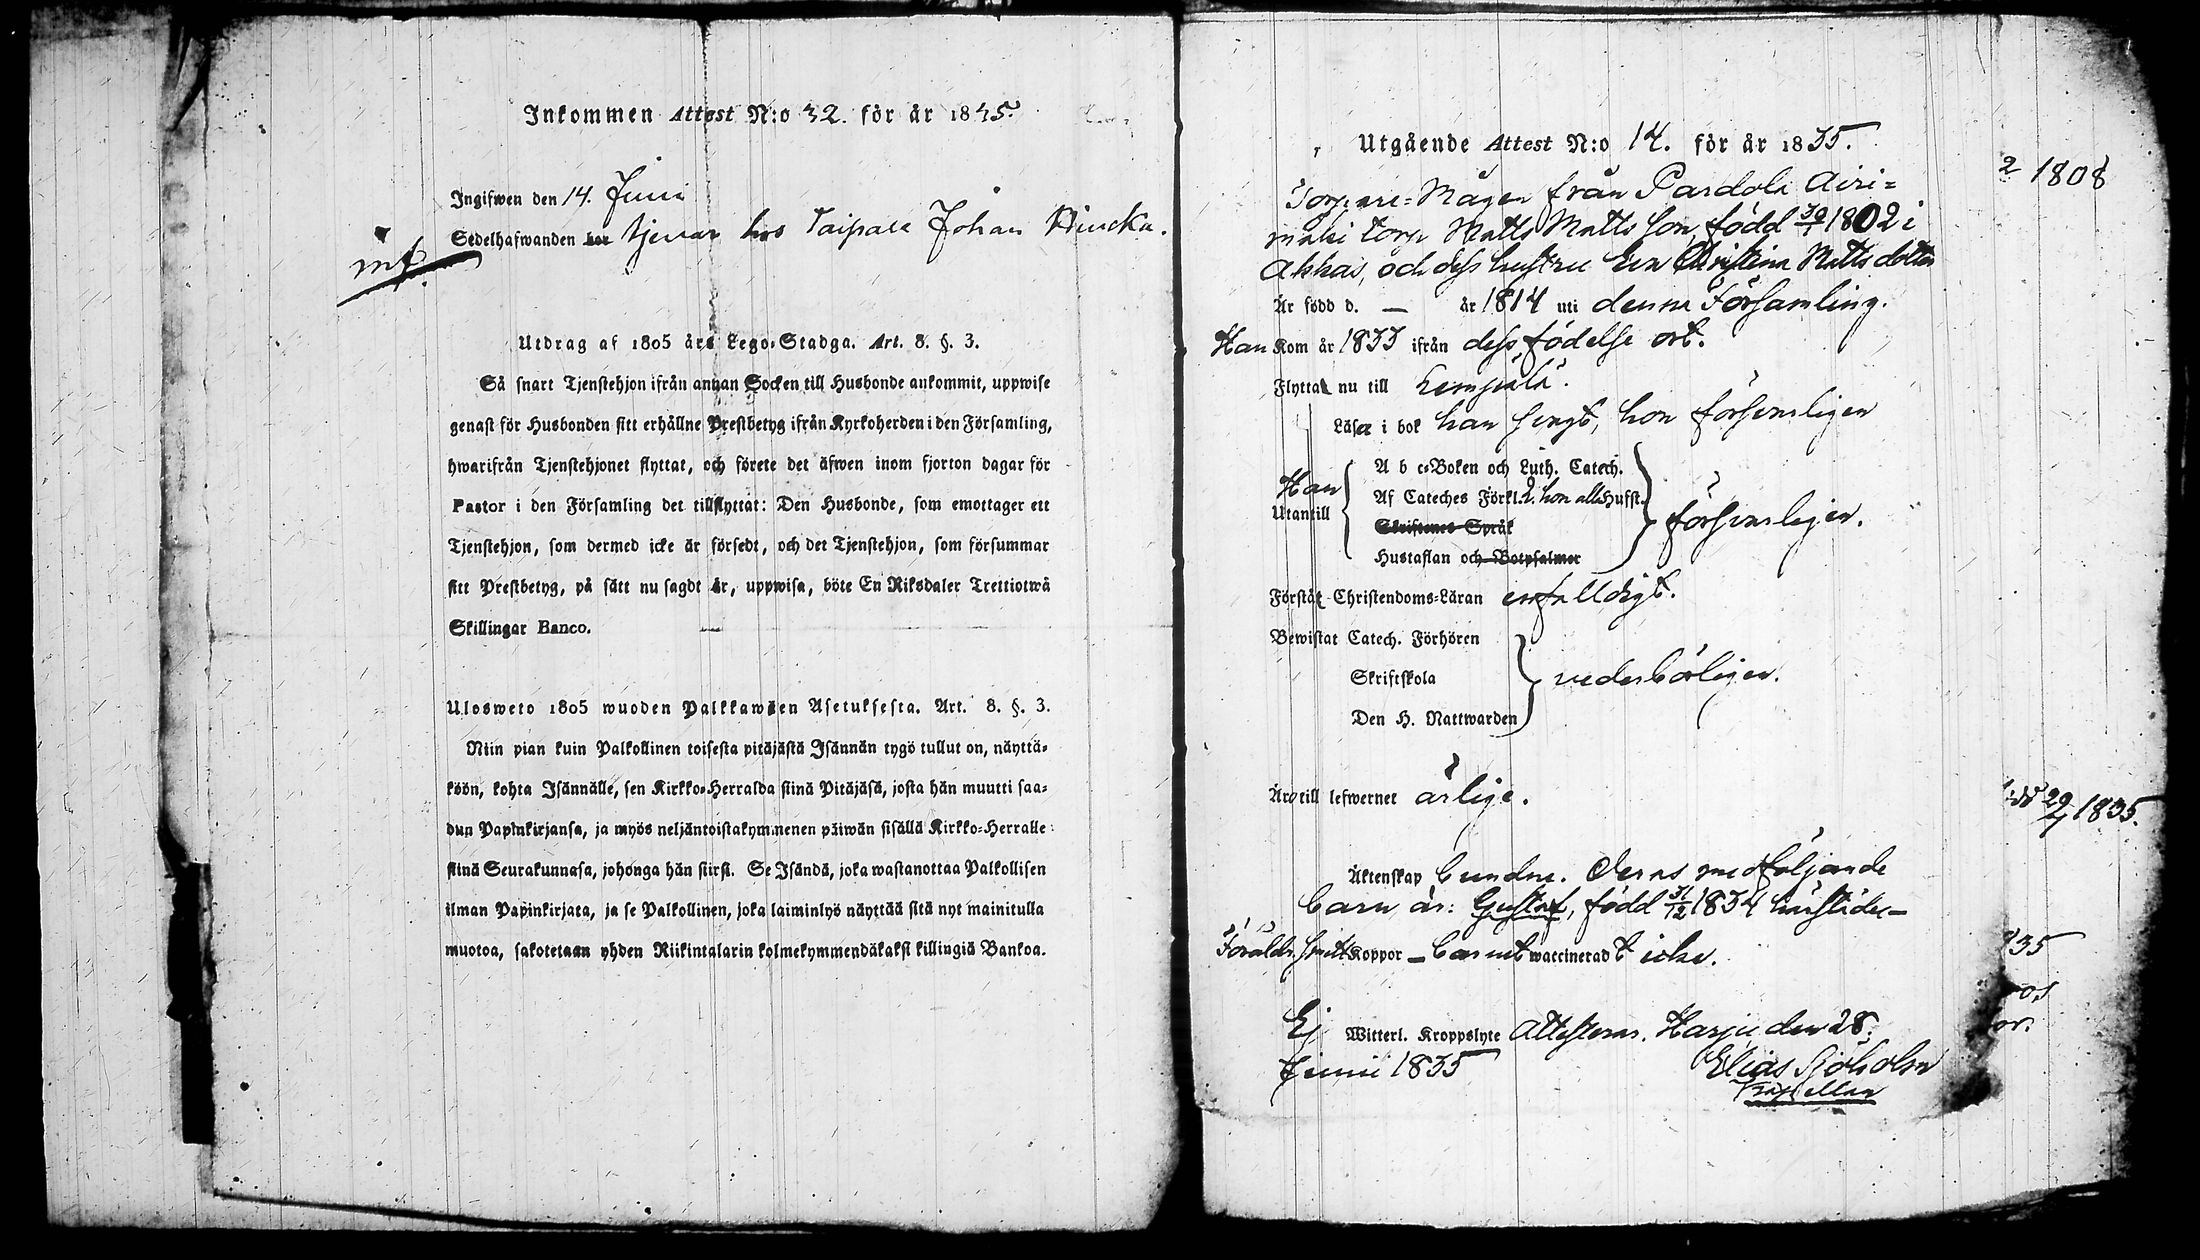 Inkommen Attest N:o 32. för år 1835.
Ingifwen den 14. Junii
Sedelhafwanden bor tjenar hos Taipale Johan Hincka.
Utdrag af 1805 års Lego-Stadga. Art. 8. §. 3.
Så snart Tjenstehjon ifrån annan Socken till Husbonde ankommit, uppwise
genast för Husbonden sitt erhållne Prestbetyg ifrån Kyrkoherden i den Församling,
hwarifrån Tjenstehjonet flyttat, och förete det äfwen inom fjorton dagar för
Pastor i den Församling det tillflyttat: Den Husbonde, som emottager ett
Tjenstehjon, som dermed icke är försedt, och det Tjenstehjon, som försummar
sitt Prestbetyg, på sätt nu sagdt är, uppwisa, böte En Riksdaler Trettiotwå
Skillingar Banco.
Ulosweto 1805 wuoden Palkkawäen Asetuksesta. Art. 8. §. 3.
Niin pian kuin Palkollinen toisesta pitäjästä Isännän tygö tullut on, näyttä-
köön, kohta Isännälle, sen Kirkko-Herralda siinä Pitäjäsä, josta hän muutti saa-
dun Papinkirjansa, ja myös neljäntoistakymmenen päiwän sisällä Kirkko-Herralle
siinä Seurakunnasa, johonga hän siirsi. Se Isändä, joka wastanottaa Palkollisen
ilman Papinkirjata, ja se Palkollinen, joka laiminlyö näyttää sitä nyt mainitulla
muotoa, sakotetaan yhden Riikintalarin kolmekymmendäkaksi killingiä Bankoa.
Utgående Attest N:o 14. för år 1835.
Torpare-Mågen från Pardola Airi=
mäki torp Matts Matts son, född 30/1 1802 i
Akkas, och dess hustru Eva Christina Matts dotter
Är född d. — år 1814 uti denna Församling.
Han Kom år 1833 ifrån dess födelse ort.
Flytta nu till Lempälä.
Läsa i bok han svagt, hon försvarligen
Han
Utantill
A b c-Boken och Luth. Catech.
Af Cateches Förkl. 2. hon all Hufst.
Skriftenes Språk
Hustaflan och Botpsalmer
försvarligen.
Förstå Christendoms-Läran enfalldigt.
Bewistat Catech. Förhören
Skriftskola
Den H. Nattwarden
vederbörligen.
Äro till lefwernet ärlige.
Äktenskap bundne. Deras medföljande
barn är: Gustaf, född 31/12 1834 härstädes
Föräldr. haft Koppor — barnet waccinerad t icke.
Ej Witterl. Kroppslyte Attesteras. Harju den 28.
Junii 1835
Elias Sjöholm
Kapellan
2 1808
29/7 1835.
835